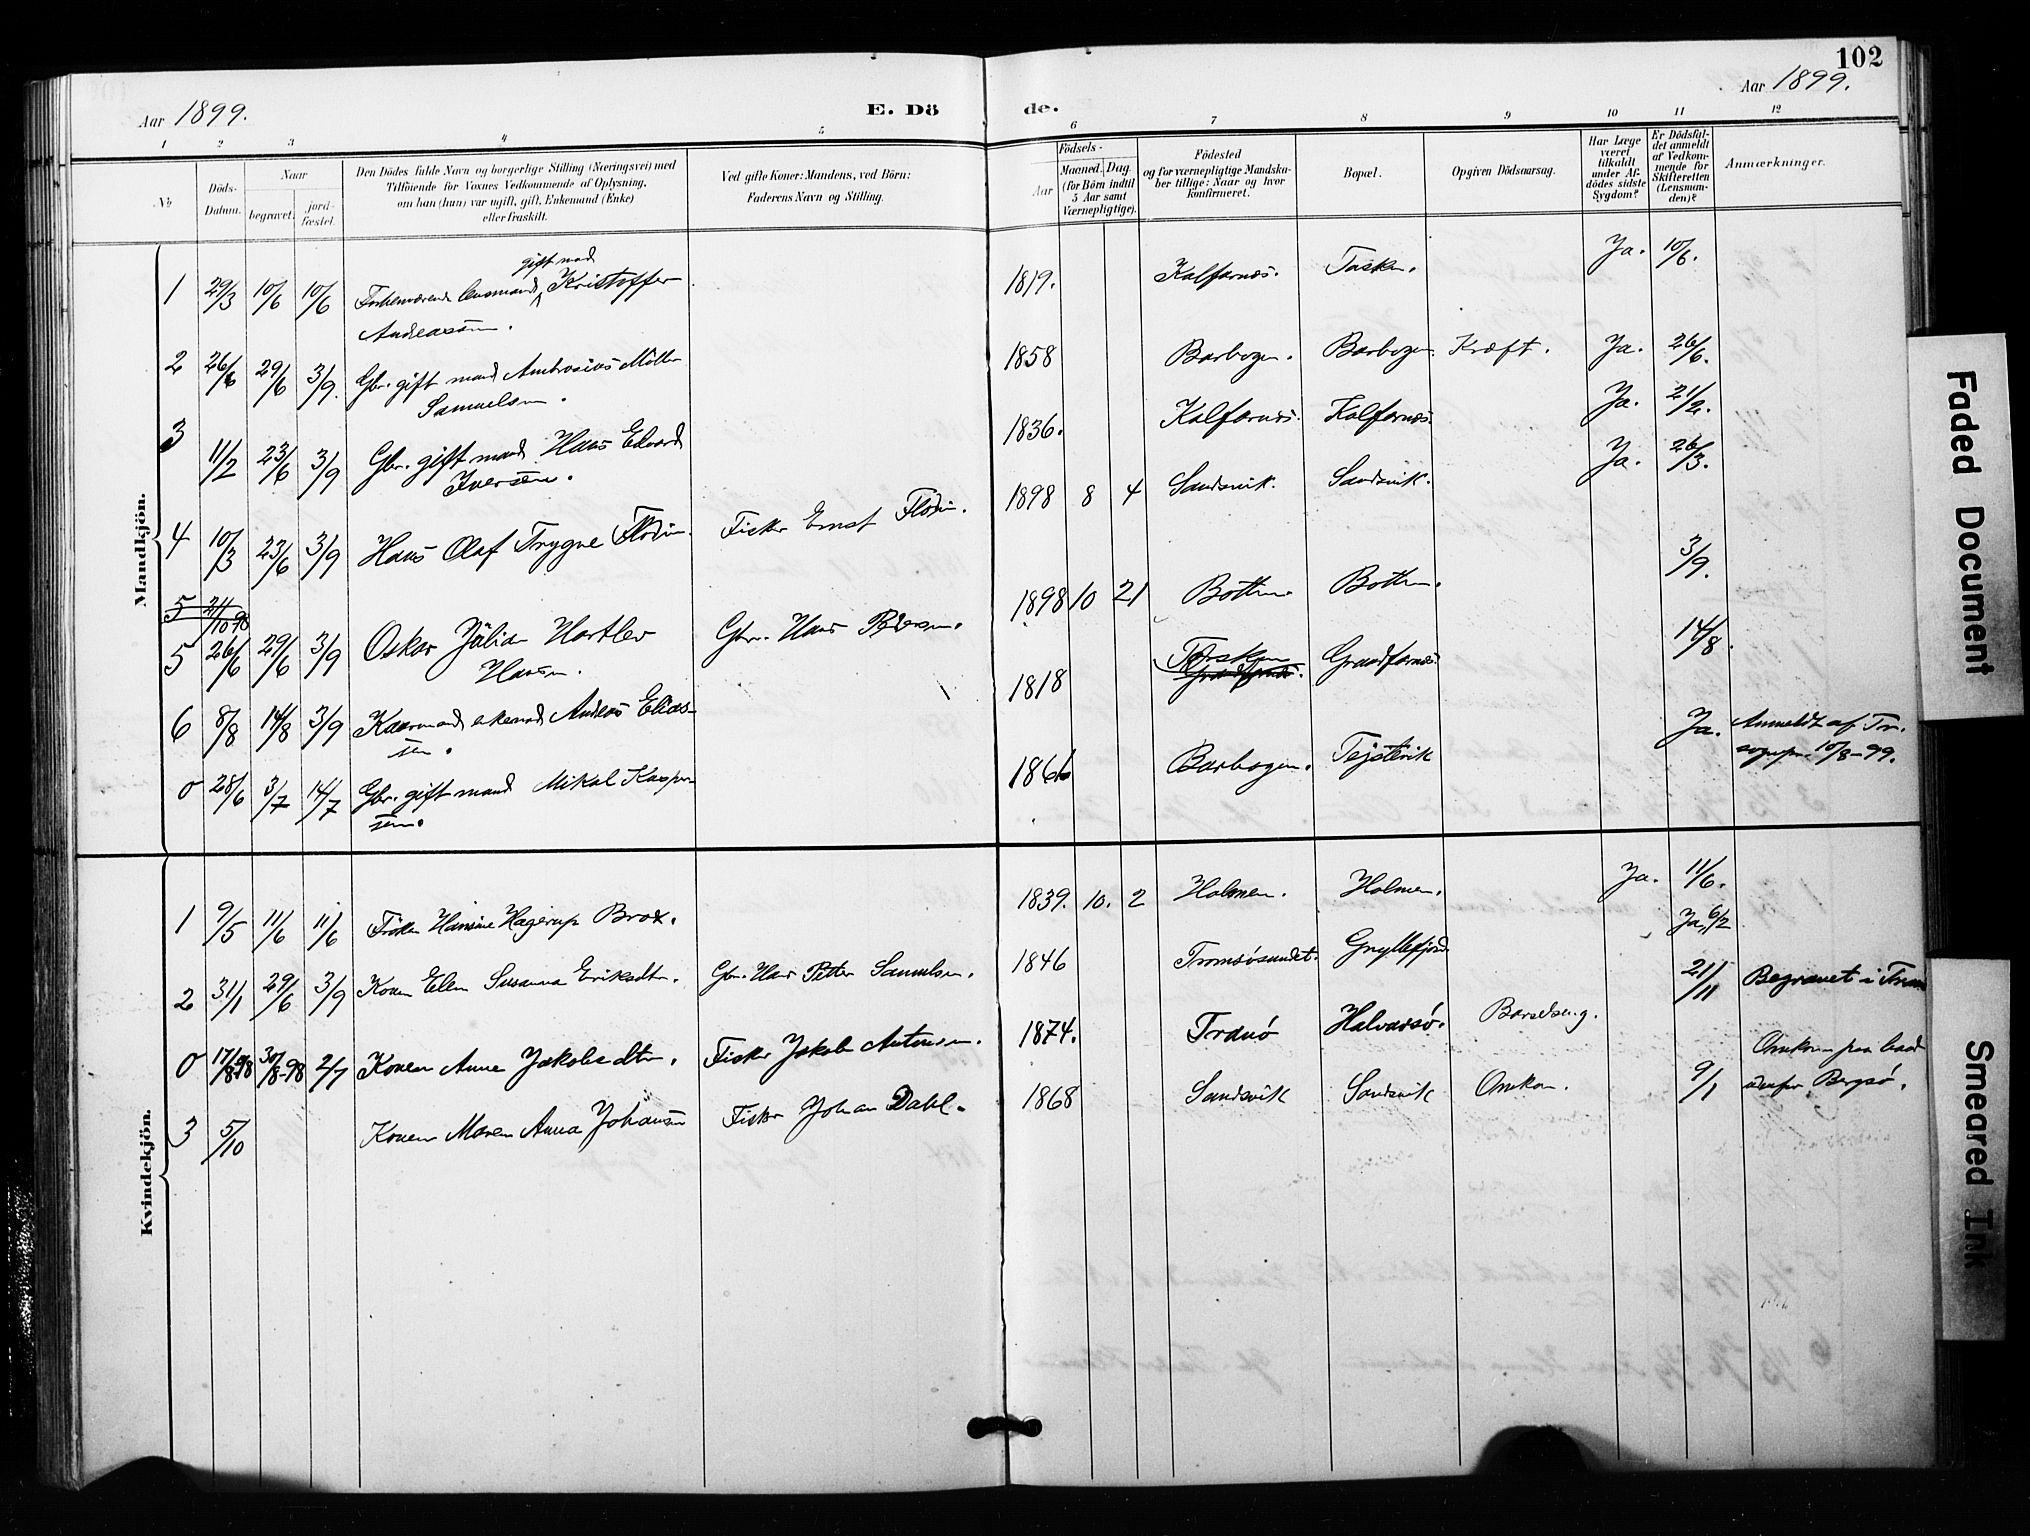 102
Aar 1899.
E. Dö de.
Aar 1899.
1 2 3 4 5 6 7 8 9 10 11 12
No
Döds-
Datum.
Naar
begravet.
jord-
fæstet.
Den Dödes fulde Navn og borgerlige Stilling (Næringsvei) med
Tilföiende för Voxnes Vedkommende af Oplysning,
om han (hun) var ugift, gift, Enkemand (Enke)
eller fraskilt.
Ved gifte Koner: Mandens, ved Börn:
Faderens Navn og Stilling.
Födsels-
Aar
Maaned. Dag.
(for Börn indtil
5 Aar samt
Værnepligtige).
Födested
og for værnepligtige Mandska-
ber tillige: Naar og hvor
konfirmeret.
Bopæl.
Opgiven Dödsaarsag.
Har Læge
været
tilkaldt
under Af-
dödes sidste
Sygdom?
Er Dödsfal-
det anmeldt
af Vedkom-
mende for
Skifteretten
(Lensman-
den)?
Anmærkninger.
Mandkjön.
gift mand
1 29/3 10/6 10/6 Forhenværende Lensmand Kristoffer 1819. Kalfarnes. Tasken. Ja. 10/6.
Andreassen.
2 26/6 29/6 3/9. Gbr. gift mand Ambrosius Möller 1858 Barbogen. Barbogen. Kræft. Ja. 26/6.
Samuelsen.
3 11/2 23/6 3/9 Gbr. gift mand Hans Edvard 1836. Kalfarnes. Kalfarnes. Ja. 21/2.
Iversen.
4 10/3 23/6 3/9 Hans Olaf Trygve Flodin. Fisker Ernst Flodin. 1898 8 4 Sandsvik. Sandsvik. Ja. 26/3.
5 21/10 98
5 26/6 29/6 3/9 Oskar Julian Hartlev Gbr. Hans Pedersen. 1898 10 21 Botten Botten. 3/9.
Hansen.
6 8/8 14/8 3/9 Kaarmand enkemand Andreas Elias- 1818 Torsken Grundfarnes. 14/8.
sen.
0 28/6 3/7 14/7 Gbr. gift mand Mikal Kasper- 1866 Barbogen. Tejstevik Ja. Anmeldt af Tr.
sen. sognepr. 10/8-99.
Kvindekjön.
1 9/5 11/6 11/6 Fröken Hansine Hagerup Brox. 1839. 10. 2 Holmen. Holmen. Ja. 11/6.
2 31/1 29/6 3/9 Konen Ellen Susanna Eriksdtr. Gbr. Hans Petter Samuelsen. 1846 Tromsøsundet. Gryllefjord Ja, 6/2
0 17/8 98 30/8-98 2/7 Konen Anne Jakobsdtr. Fisker Jakob Antonsen. 1874. Tranö Halvarsö. Barselseng. 21/11 Begravet i Tranö
3 5/10 Konen Maren Anna Johansen Fisker Johan Dahl. 1868 Sandsvik Sandsvik Omkom. 9/1 Omkom paa baad
udenfor Bergsö.
Faded Document
Smeared Ink